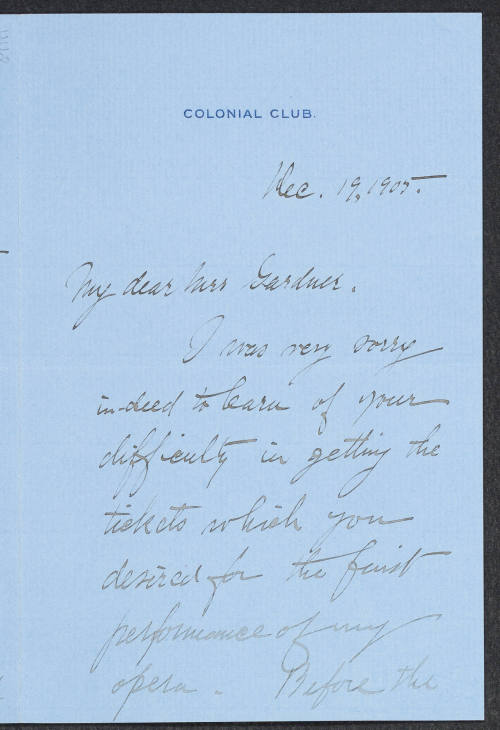 COLONIAL CLUB.
Dec. 19, 1905.
My dear Mrs Gardner.
I was very sorry
indeed to learn of your
difficulty in getting the
tickets which you
desired for the first
performance of my
opera. Before the